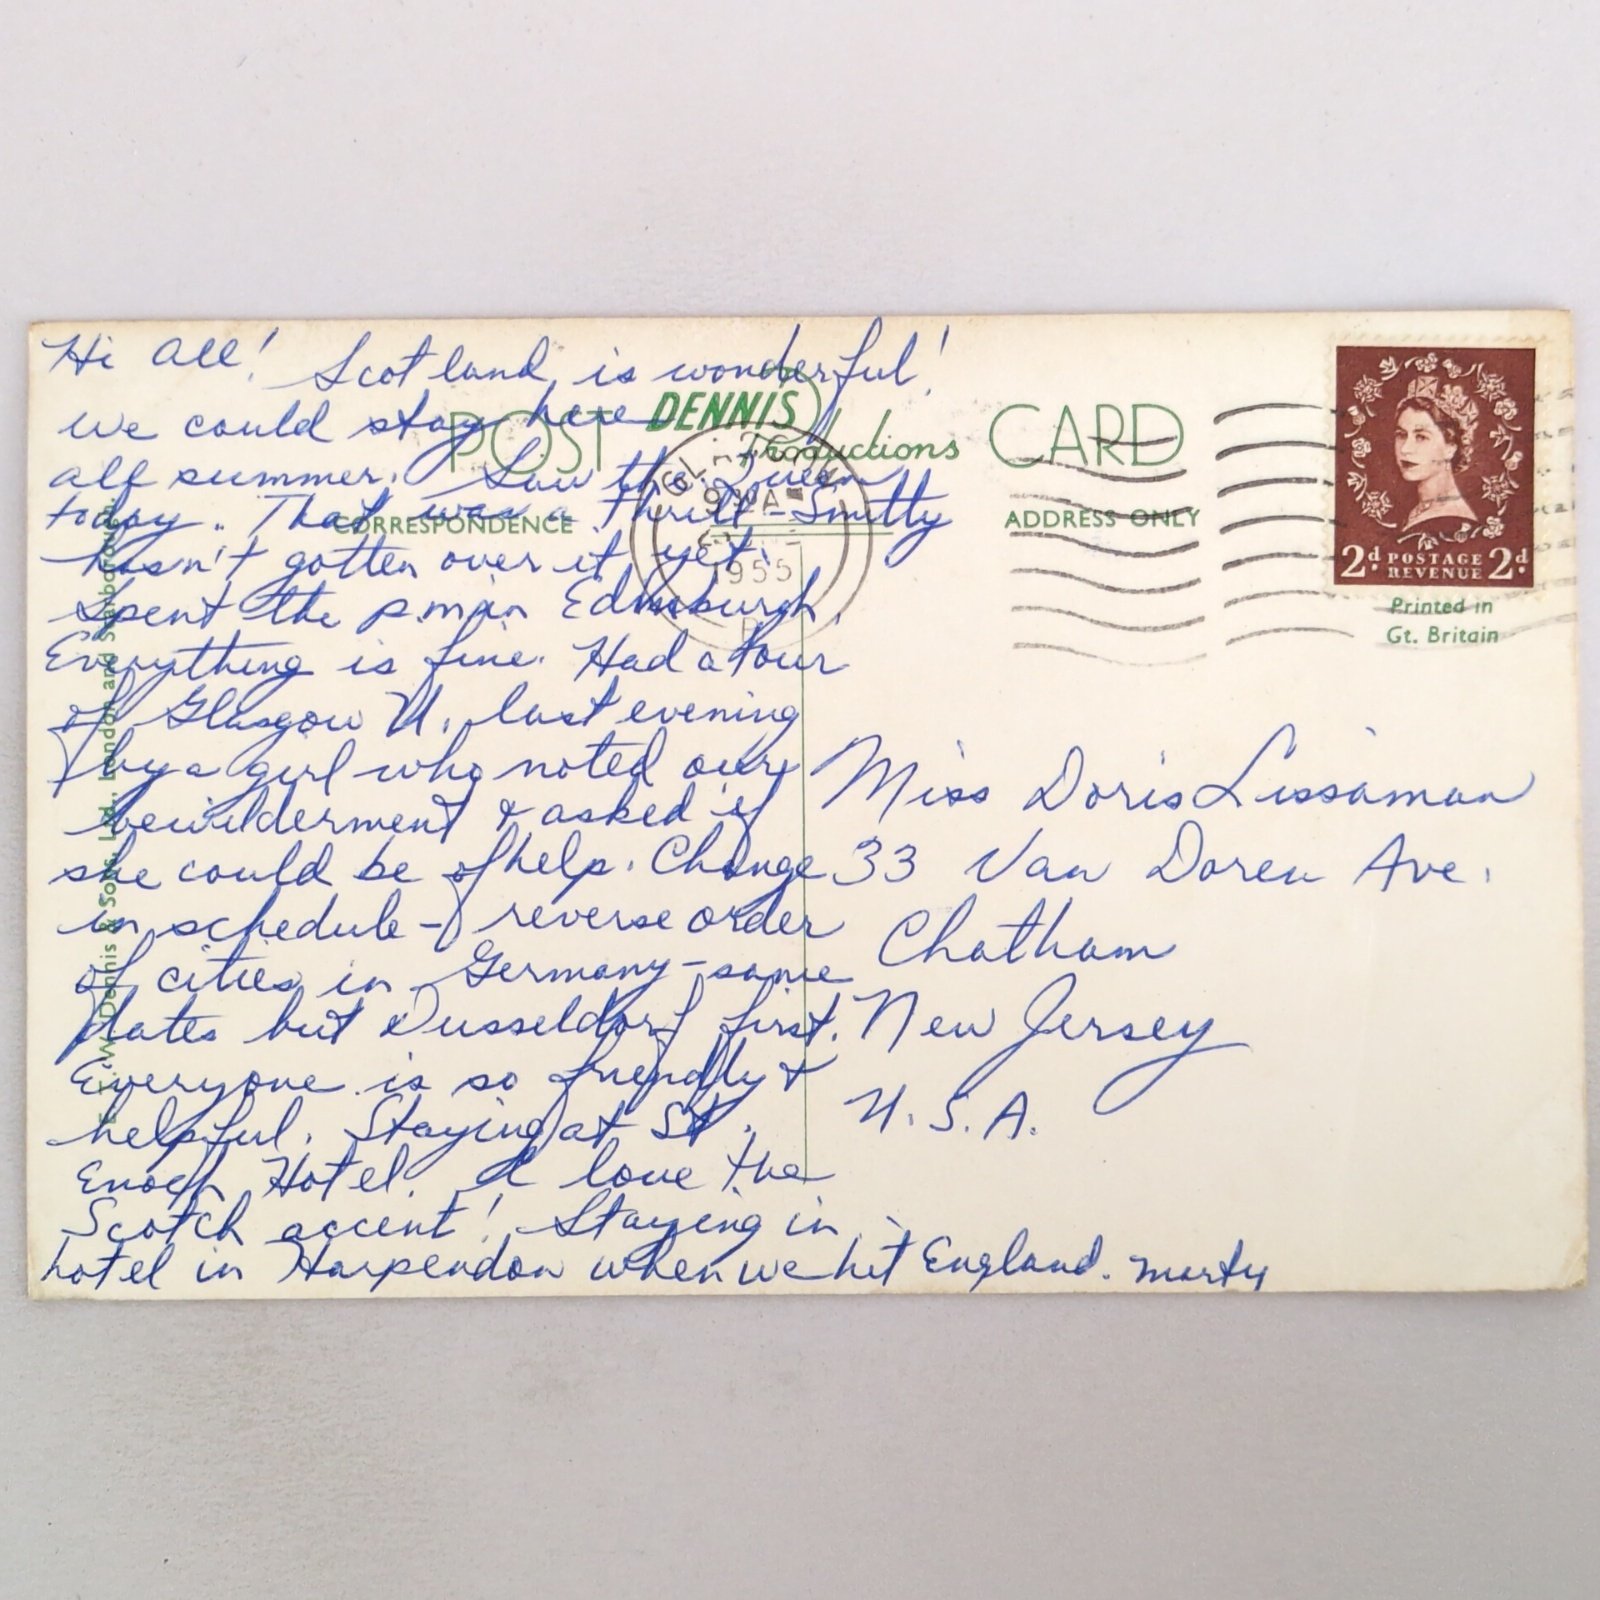 Hi all! Scotland is wonderful!
we could stay here
all summer. Saw the Queen
today. That was a thrill - Smitty
hasn't gotten over it yet!
Spent the p.m. in Edinburgh.
Everything is fine. Had a tour
of Glasgow U. last evening
by a girl who noted our
bewilderment & asked if
she could be of help. Change
in schedule - reverse order
of cities in Germany - same
dates but Dusseldorf first.
Everyone is so friendly &
helpful. Staying at St.
Enoch Hotel. I love the
Scotch accent! Staying in
hotel in Harpendon when we hit England. Marty
POST CARD
DENNIS
Productions
CORRESPONDENCE
ADDRESS ONLY
1955
2d POSTAGE 2d
REVENUE
Printed in
Gt. Britain
Miss Doris Lissaman
33 Van Doren Ave.
Chatham
New Jersey
U.S.A.
Dennis & Sons, Ltd., London and Scarborough